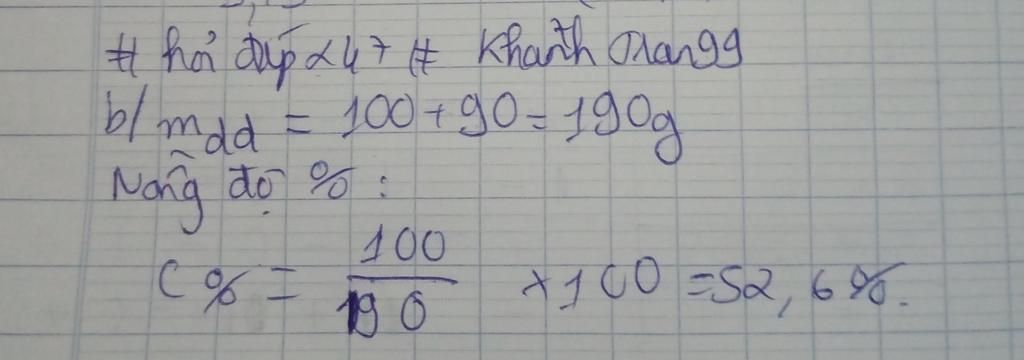 # hỏi đáp 247 # Khanh Giangg
b/ mdd = 100 + 90 = 190g
Nồng độ % :
C% = 100/190 × 100 = 52,6%.